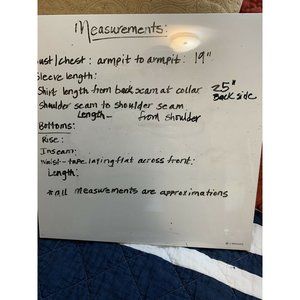 Measurements:
ust/chest: armpit to armpit: 19"
Sleeve length:
Shirt length from back seam at collar 25"
Back side
Shoulder seam to shoulder seam
Length- from shoulder
Bottoms:
Rise:
Inseam:
Waist-tape laying flat across front:
Length:
*all measurements are approximations